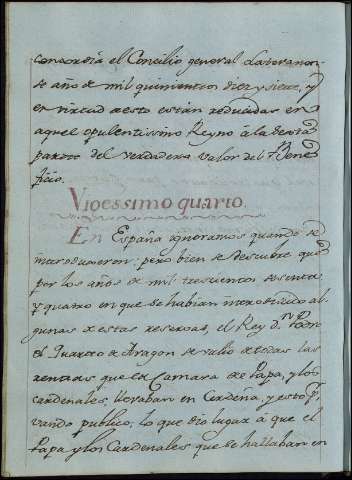 concordia el Concilio general Lateranen-
se año de mil quinientos diez y siete, y
en virtud de esto están reducidas en
aquel opulentissimo Reyno à la decima
parte del verdadero valor del Bene
ficio.
Vigessimo quarto.
En España ignoramos quando se
introduxeron: pero bien se descubre que
por los años de mil trescientos sesenta
y quatro en que se habian introducido al-
gunas de estas reservas, el Rey dn. Pedro
el Quarto de Aragon se valio de todas las
rentas que la Camara de Papa, y los
Cardenales, llevaban en Cerdeña, y esto pr.
vando publico, lo que dio lugar à que el
Papa y los Cardenales que se hallaban en